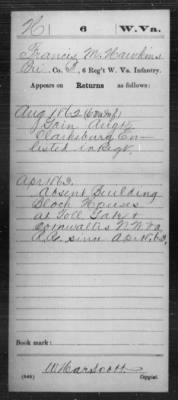 H 6 W.Va.
Francis M. Hawkins
Co. , 6 Reg't W. Va. Infantry.
Appears on Returns as follows:
Aug 1862
Gain Aug
Clarksburg En-
listed in Regt.
Apr 1863.
Absent Building
Block Houses
at Toll Gate &
Cornwallis N.W. Va
R.R. since Apr 1863
Book mark:
(546) Copyist.